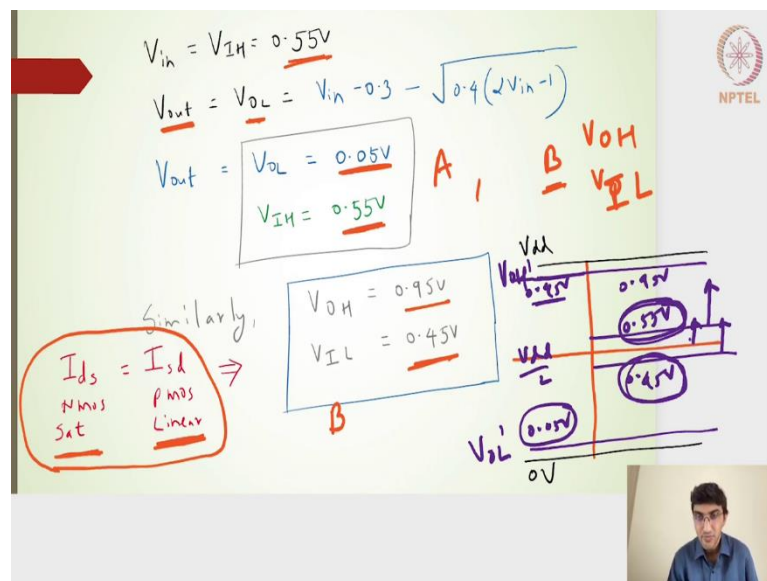 Vin = VIH = 0.55V
Vout = VOL = Vin - 0.3 - √0.4(2Vin-1)
Vout = VOL = 0.05V
VIH = 0.55V
A, B VOH
VIL
NPTEL
Similarly,
VOH = 0.95V
VIL = 0.45V
B
Ids = Isd ⇒
Nmos Pmos
Sat Linear
Vdd
VOH' 0.95V 0.95V
0.55V
Vdd
0.45V
VOL' 0.05V
0V